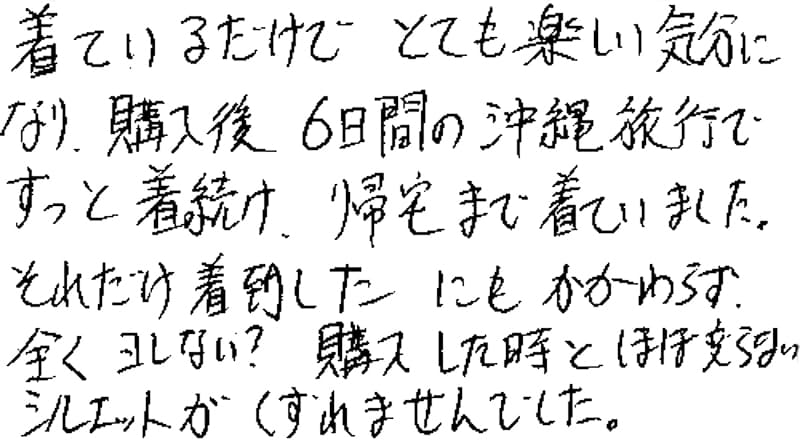 着ているだけで とても楽しい気分に
なり、購入後 6日間の沖縄旅行で
ずっと着続け、帰宅まで着ていました。
それだけ着到したにもかかわらず、
全くヨレない？ 購入した時とほぼ変らない
シルエットがくずれませんでした。